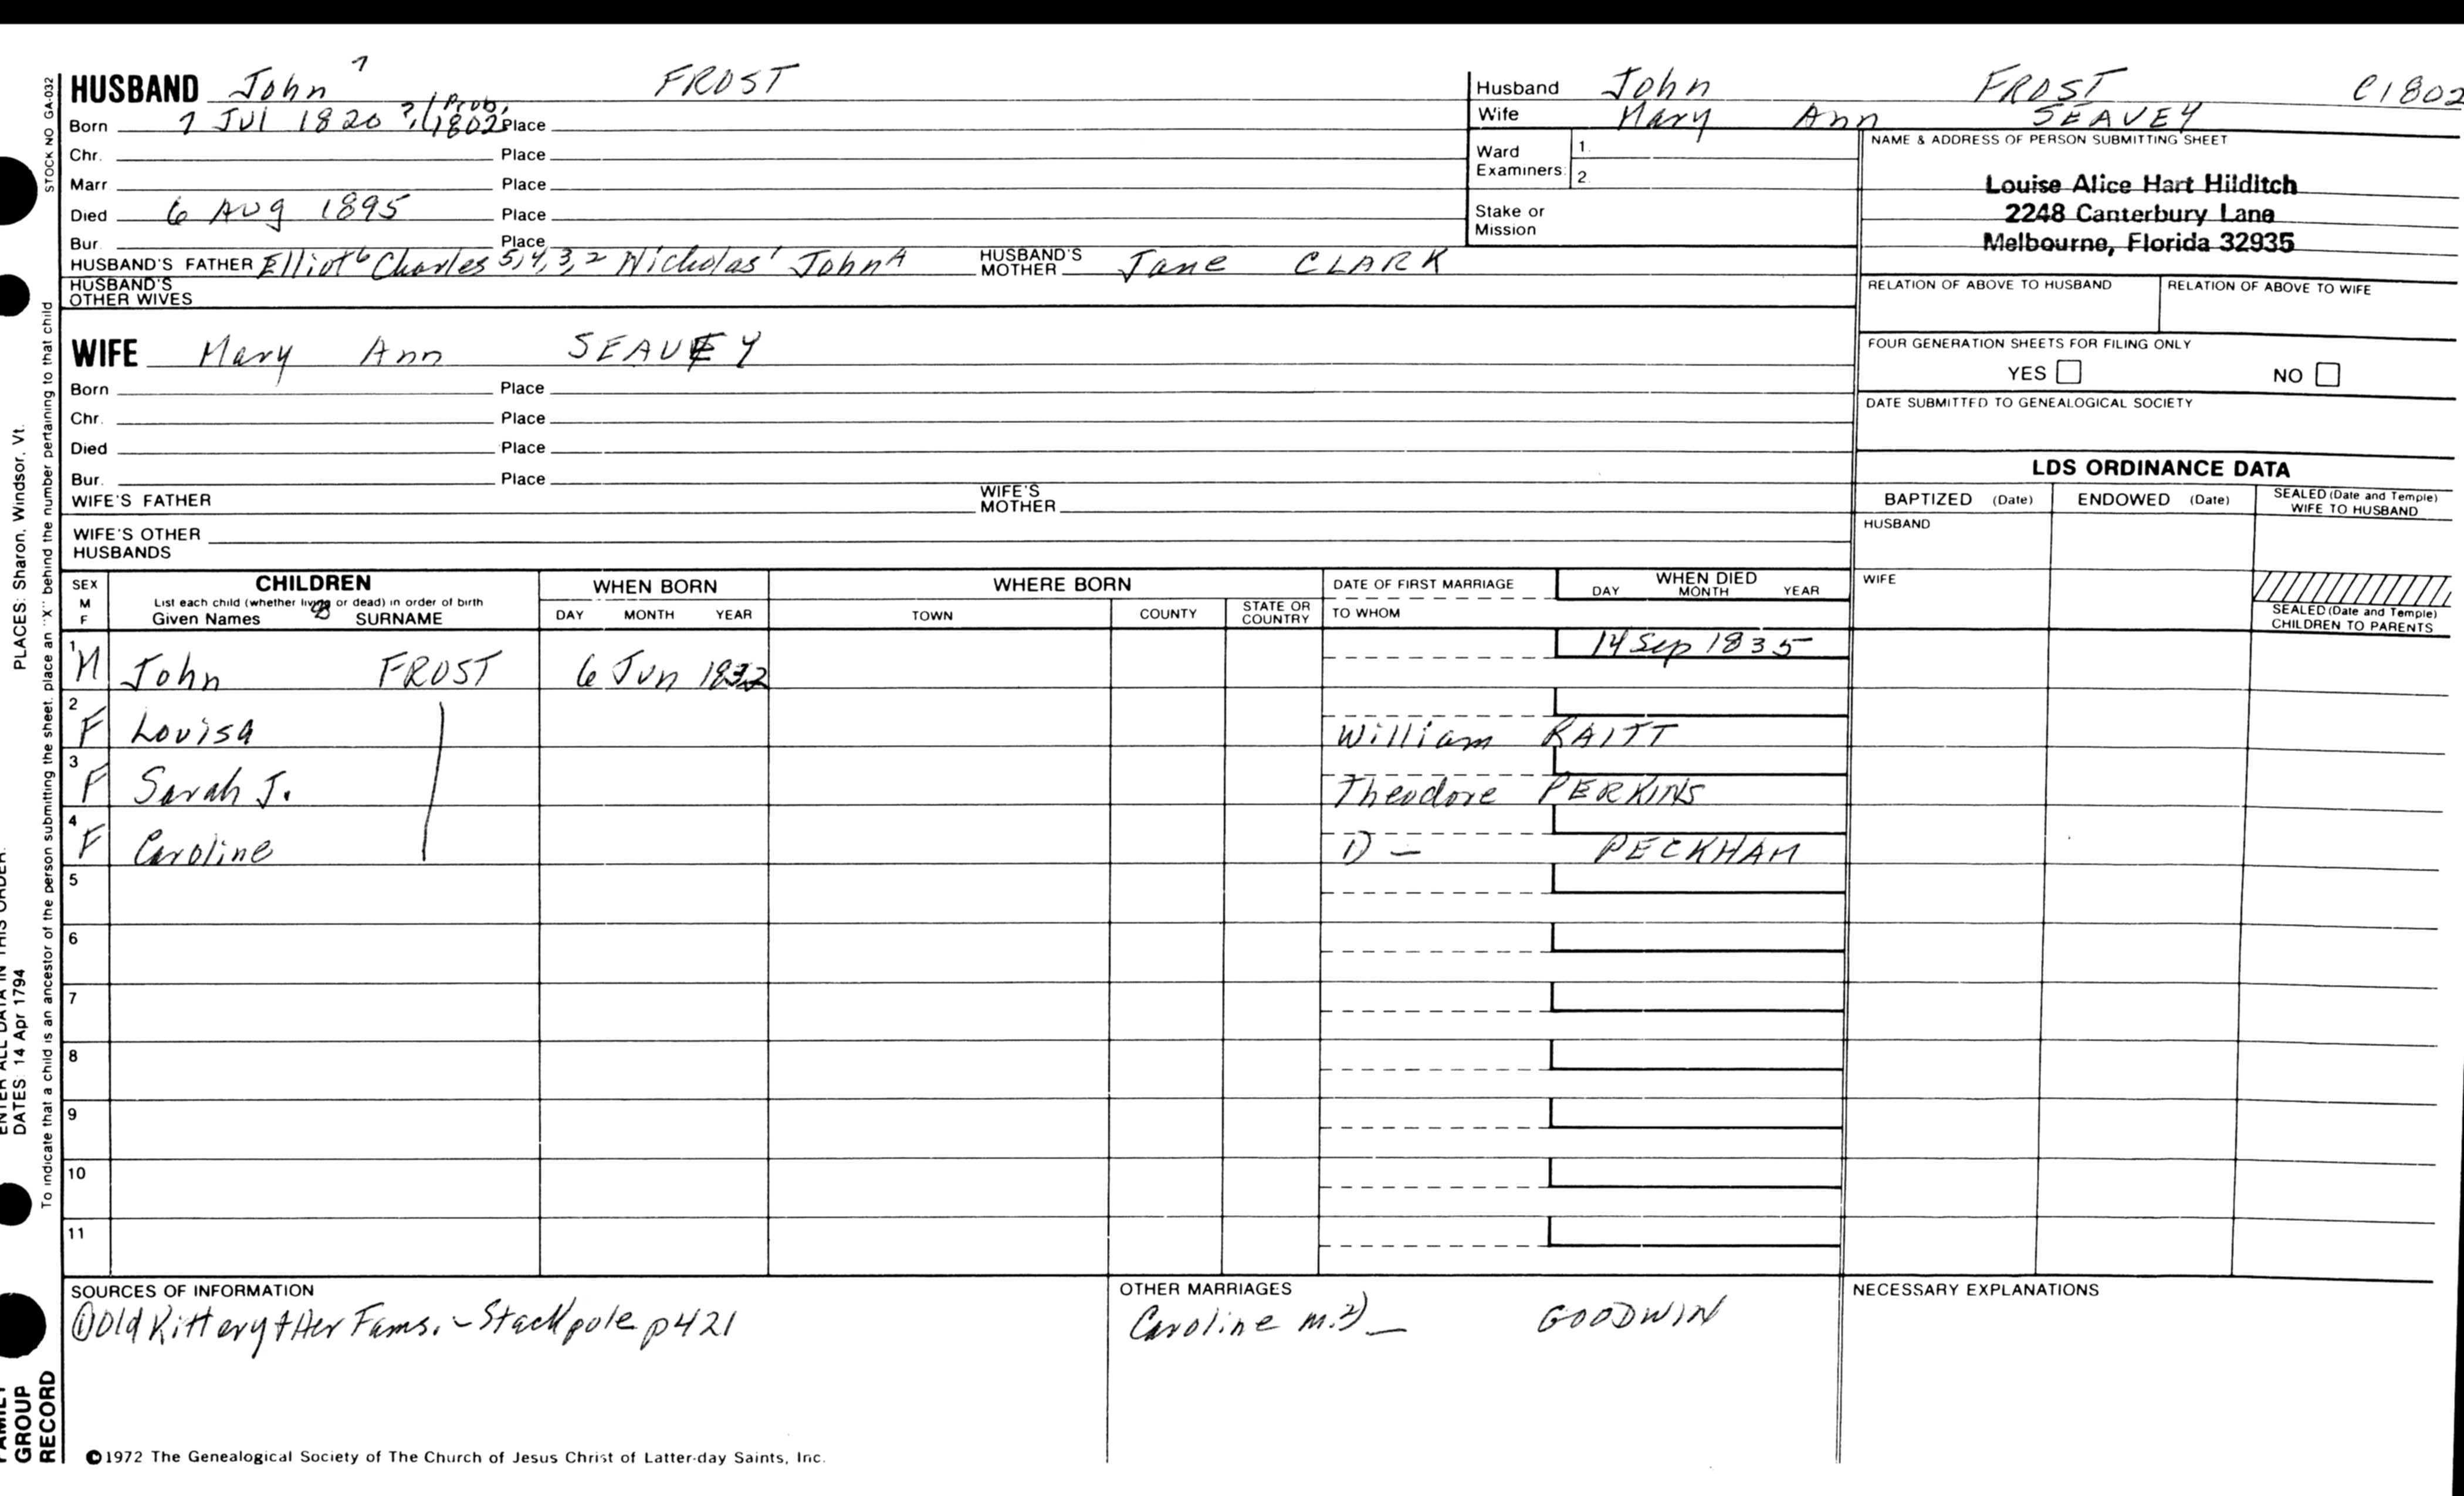 HUSBAND John 7 FROST
Born 7 Jul 1820 ?/(Prob. 1802) Place
Chr. Place
Marr Place
Died 6 AUg 1895 Place
Bur. Place
HUSBAND'S FATHER Elliot 6 Charles 5,4,3,2 Nicholas 1 John A HUSBAND'S MOTHER Jane CLARK
HUSBAND'S OTHER WIVES
Husband John FROST C1802
Wife Mary Ann SEAVEY
Ward Examiners: 1. 2.
Stake or Mission
NAME & ADDRESS OF PERSON SUBMITTING SHEET
Louise Alice Hart Hilditch
2248 Canterbury Lane
Melbourne, Florida 32935
RELATION OF ABOVE TO HUSBAND RELATION OF ABOVE TO WIFE
FOUR GENERATION SHEETS FOR FILING ONLY
YES NO
DATE SUBMITTED TO GENEALOGICAL SOCIETY
WIFE Mary Ann SEAVEY
Born Place
Chr. Place
Died Place
Bur. Place
WIFE'S FATHER WIFE'S MOTHER
WIFE'S OTHER HUSBANDS
LDS ORDINANCE DATA
BAPTIZED (Date) ENDOWED (Date) SEALED (Date and Temple) WIFE TO HUSBAND
HUSBAND
WIFE
SEALED (Date and Temple) CHILDREN TO PARENTS
SEX M F CHILDREN WHEN BORN WHERE BORN DATE OF FIRST MARRIAGE WHEN DIED
List each child (whether living or dead) in order of birth
Given Names SURNAME DAY MONTH YEAR TOWN COUNTY STATE OR COUNTRY TO WHOM DAY MONTH YEAR
1 M John FROST 6 Jun 1832 14 Sep 1835
2 F Louisa William RAITT
3 F Sarah J. Theodore PERKINS
4 F Caroline D — PECKHAM
5
6
7
8
9
10
11
SOURCES OF INFORMATION
① Old Kittery & Her Fams. - Stackpole p421
OTHER MARRIAGES
Caroline m.2) — GOODWIN
NECESSARY EXPLANATIONS
©1972 The Genealogical Society of The Church of Jesus Christ of Latter-day Saints, Inc.
STOCK NO GA-032
To indicate that a child is an ancestor of the person submitting the sheet, place an "X" behind the number pertaining to that child
PLACES: Sharon, Windsor, Vt.
ENTER ALL DATA IN THIS ORDER:
DATES: 14 Apr 1794
FAMILY
GROUP
RECORD